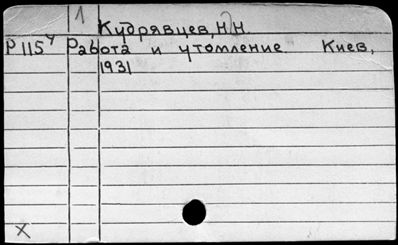 1
Кудрявцев, Н.Н.
Р 115ч Работа и утомление Киев,
1931
X